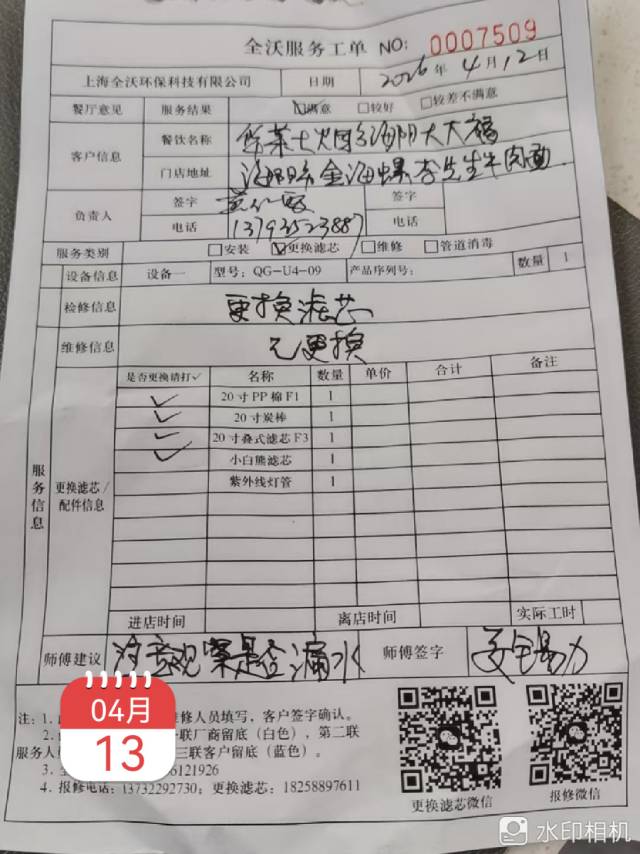 全沃服务工单 NO: 0007509
上海全沃环保科技有限公司 日期 2026年4月12日
餐厅意见 服务结果 ☑满意 □较好 □较差不满意
客户信息 餐饮名称
门店地址 金海 李先生牛肉面
负责人 签字 签字
电话 13793523887 电话
服务类别 □安装 ☑更换滤芯 □维修 □管道消毒
设备信息 设备一 型号: QG-U4-09 产品序列号: 数量 1
检修信息 更换滤芯
维修信息 已更换
服务信息 更换滤芯/配件信息
是否更换请打✓ 名称 数量 单价 合计 备注
✓ 20寸PP棉F1 1
✓ 20寸炭棒 1
✓ 20寸叠式滤芯F3 1
✓ 小白熊滤芯 1
紫外线灯管 1
进店时间 离店时间 实际工时
师傅建议 注意观察是否漏水 师傅签字
注: 1. 维修人员填写，客户签字确认。
2. 联厂商留底（白色），第二联
服务人 三联客户留底（蓝色）。
3. 6121926
4. 报修电话: 13732292730; 更换滤芯: 18258897611
更换滤芯微信 报修微信
04月
13
水印相机